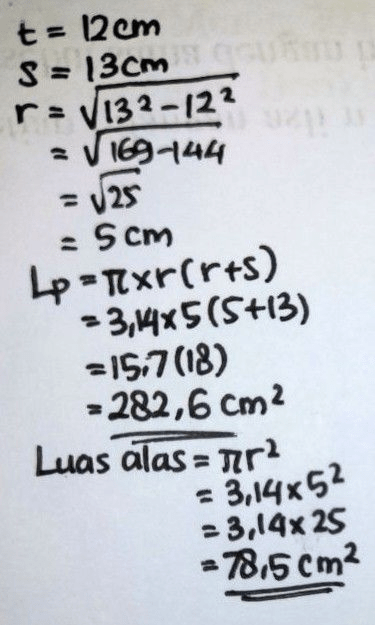 t = 12cm
s = 13cm
r = √13² - 12²
= √169-144
= √25
= 5 cm
Lp = π × r (r+s)
= 3,14 × 5 (5+13)
= 15,7 (18)
= 282,6 cm²
Luas alas = πr²
= 3,14 × 5²
= 3,14 × 25
= 78,5 cm²